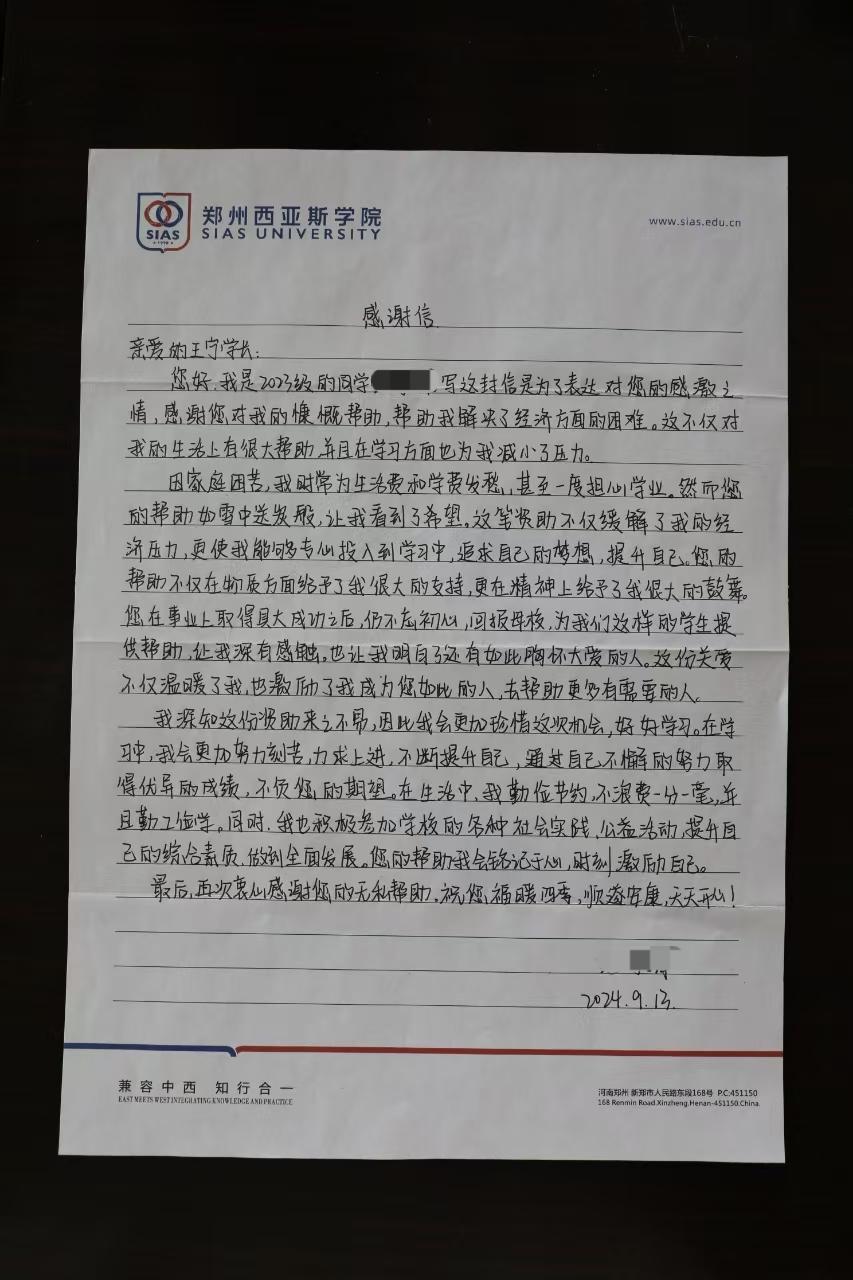 SIAS
1998
郑州西亚斯学院
SIAS UNIVERSITY
www.sias.edu.cn
感谢信
亲爱的王宁学长:
您好,我是2023级的同学,写这封信是为了表达对您的感激之
情,感谢您对我的慷慨帮助,帮助我解决了经济方面的困难。这不仅对
我的生活上有很大帮助,并且在学习方面也为我减小了压力。
因家庭困苦,我时常为生活费和学费发愁,甚至一度担心学业。然而您
的帮助如雪中送炭般,让我看到了希望。这笔资助不仅缓解了我的经
济压力,更使我能够专心投入到学习中,追求自己的梦想,提升自己。您的
帮助不仅在物质方面给予了我很大的支持,更在精神上给予了我很大的鼓舞。
您在事业上取得巨大成功之后,仍不忘初心,回报母校,为我们这样的学生提
供帮助,让我深有感触。也让我明白了还有如此胸怀大爱的人。这份关爱
不仅温暖了我,也激励了我成为您如此的人,去帮助更多有需要的人。
我深知这份资助来之不易,因此我会更加珍惜这次机会,好好学习。在学
习中,我会更加努力刻苦,力求上进,不断提升自己,通过自己不懈的努力取
得优异的成绩,不负您的期望。在生活中,我勤俭节约,不浪费一分一毫,并
且勤工俭学。同时,我也积极参加学校的各种社会实践,公益活动,提升自
己的综合素质,做到全面发展。您的帮助我会铭记于心,时刻激励自己。
最后,再次衷心感谢您的无私帮助。祝您,福暖四季,顺遂安康,天天开心!
2024.9.13.
兼容中西 知行合一
EAST MEETS WEST INTEGRATING KNOWLEDGE AND PRACTICE
河南郑州 新郑市人民路东段168号 P.C:451150
168 Renmin Road.Xinzheng.Henan-451150.China.